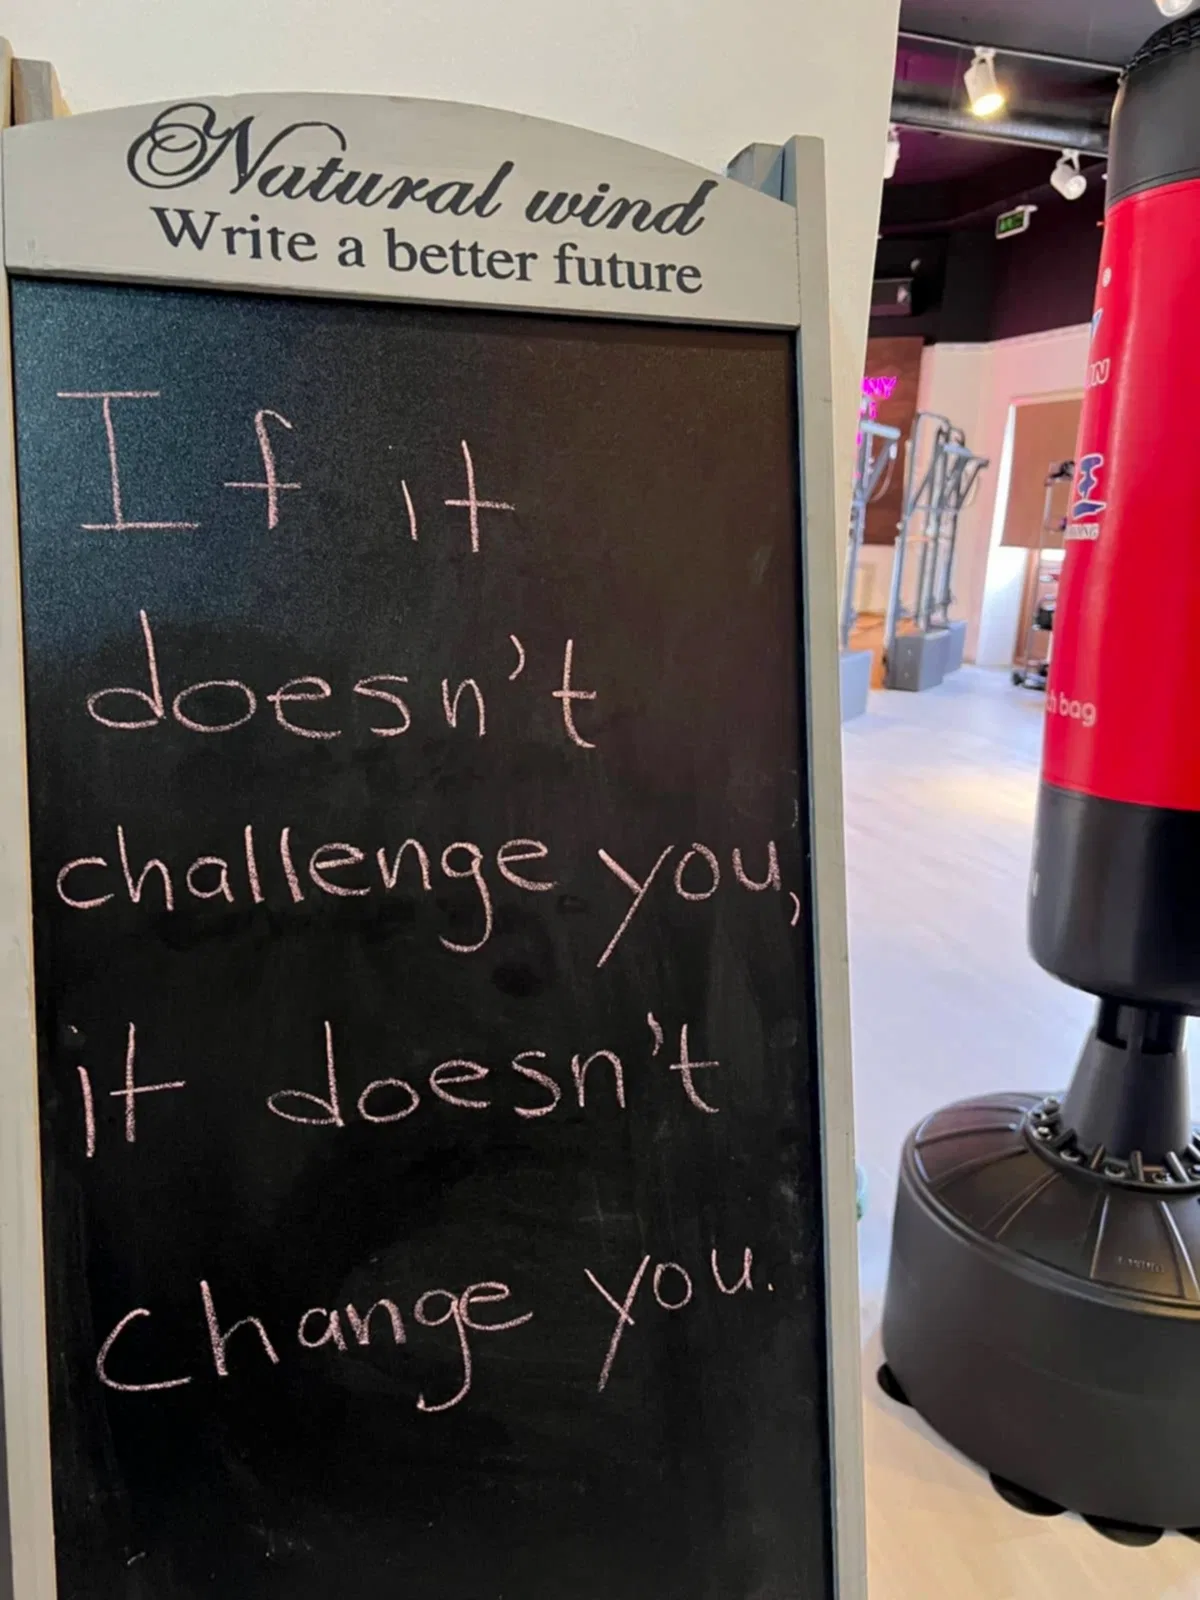 Natural wind
Write a better future
If it
doesn't
challenge you,
it doesn't
Change you.
NY
IN
h bag